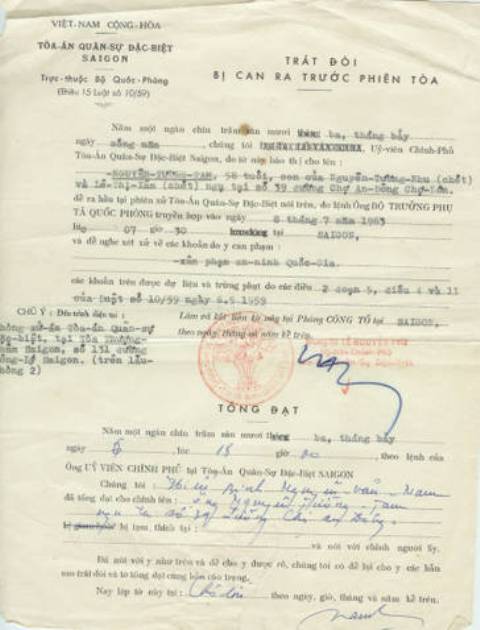 VIỆT-NAM CỘNG-HÒA
TÒA-ÁN QUÂN-SỰ ĐẶC-BIỆT
SAIGON
Trực-thuộc Bộ Quốc-Phòng
(Điều 15 Luật số 10/59)
TRÁT ĐÒI
BỊ CAN RA TRƯỚC PHIÊN TÒA
Năm một ngàn chín trăm sáu mươi ba, tháng bảy
ngày sồng năm , chúng tôi , Uỷ-viên Chính-Phủ
Tòa-Án Quân-Sự Đặc-Biệt Saigon, do tờ này báo thị cho tên :
-NGUYỄN-TƯỜNG-TAM, 58 tuổi, con của Nguyễn-Tường-Nhu (chết)
và Lê-Thị-Sâm (chết) ngụ tại số 39 đường Chợ An-Đông Chợ-Lớn.
để ra hầu tại phiên xử Tòa-Án Quân-Sự Đặc-Biệt nói trên, do lệnh Ông BỘ TRƯỞNG PHỤ
TÁ QUỐC PHÒNG truyền họp vào ngày 8 tháng 7 năm 1963
lúc 07 giờ 30 tại SAIGON,
và để nghe xét xử về các khoản do y can phạm :
-xâm phạm an-ninh Quốc-Gia.
các khoản trên được dự liệu và trừng phạt do các điều 2 đoạn 5, điều 4 và 11
của luật số 10/59 ngày 6.5.1959
CHÚ Ý : Đến trình diện tại :
phòng xử-án Tòa-án Quân-sự
Đặc-biệt, tại Tòa Thượng-
thẩm Saigon, số 131 đường
Công-lý Saigon. (trên lầu-
phòng 2)
Làm và kết liễu tờ này tại Phòng CÔNG TỐ tại SAIGON,
theo ngày, tháng và năm kể trên.
TỐNG ĐẠT
Năm một ngàn chín trăm sáu mươi ba, tháng bảy
ngày 6 lúc 15 giờ 00 , theo lệnh của
Ông UỶ VIÊN CHÍNH PHỦ tại Tòa-Án Quân-Sự Đặc-Biệt SAIGON
Chúng tôi : Nguyễn văn Nam
đã tống đạt cho chính tên : ông Nguyễn Tường Tam
ngụ tại số 39 đường Chợ An Đông
bị tạm, thích tại : và nói với chính người ấy.
Đã nói với y như trên và để cho y được rõ, chúng tôi có để lại cho y các bản
sao trát đòi và tờ tống đạt cùng bản cáo trạng.
Nay lập tờ này tại : Chợ lớn theo ngày, giờ, tháng và năm kể trên.